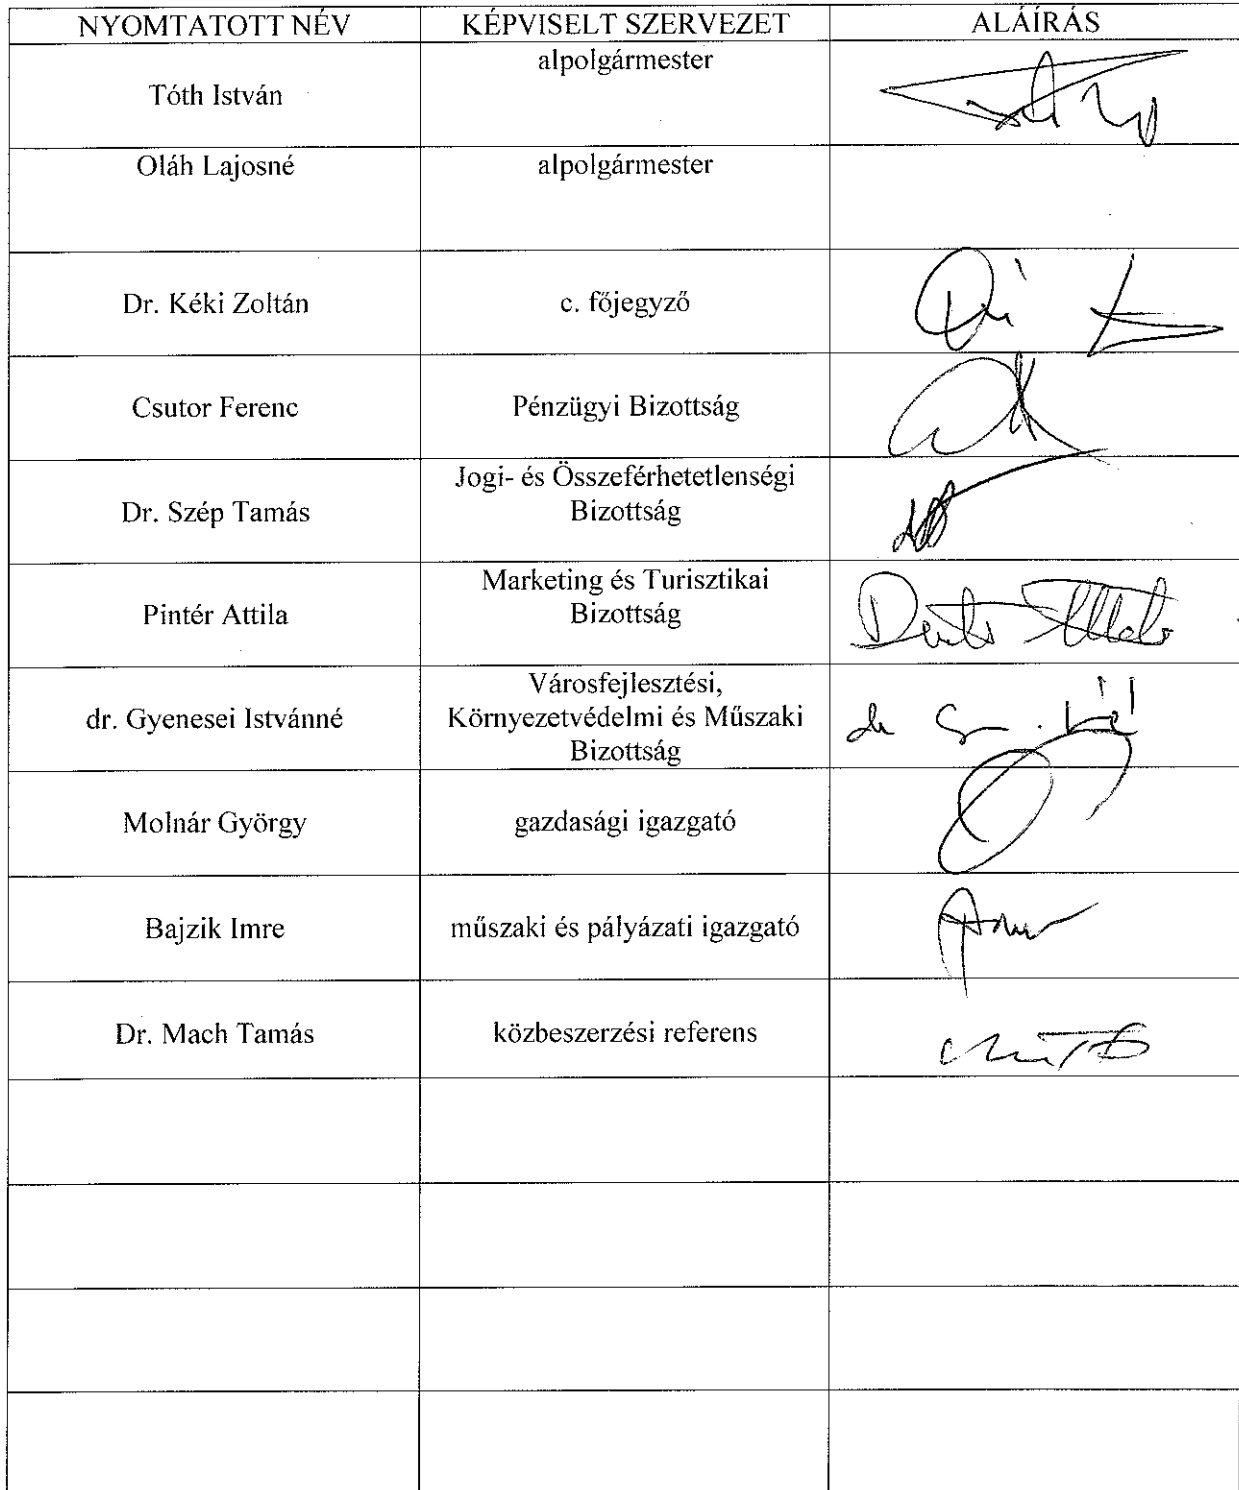 NYOMTATOTT NÉV KÉPVISELT SZERVEZET ALÁÍRÁS
Tóth István alpolgármester
Oláh Lajosné alpolgármester
Dr. Kéki Zoltán c. főjegyző
Csutor Ferenc Pénzügyi Bizottság
Dr. Szép Tamás Jogi- és Összeférhetetlenségi
Bizottság
Pintér Attila Marketing és Turisztikai
Bizottság
dr. Gyenesei Istvánné Városfejlesztési,
Környezetvédelmi és Műszaki
Bizottság
Molnár György gazdasági igazgató
Bajzik Imre műszaki és pályázati igazgató
Dr. Mach Tamás közbeszerzési referens